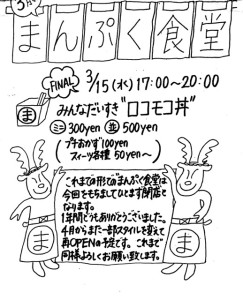 3月の
まんぷく食堂
FINAL
3/15(水)17:00~20:00
みんなだいすき"ロコモコ丼"
ミニ300yen 並500yen
(プチおかず100yen
スイーツ各種 50yen~)
ま
これまでの形でのまんぷく食堂は
今回をもちましてひとまず閉店と
なります。
1年間どうもありがとうございました。
4月からまた一部スタイルを変えて
再OPENの予定です。これまで
同様よろしくお願い致します。
ま
ま